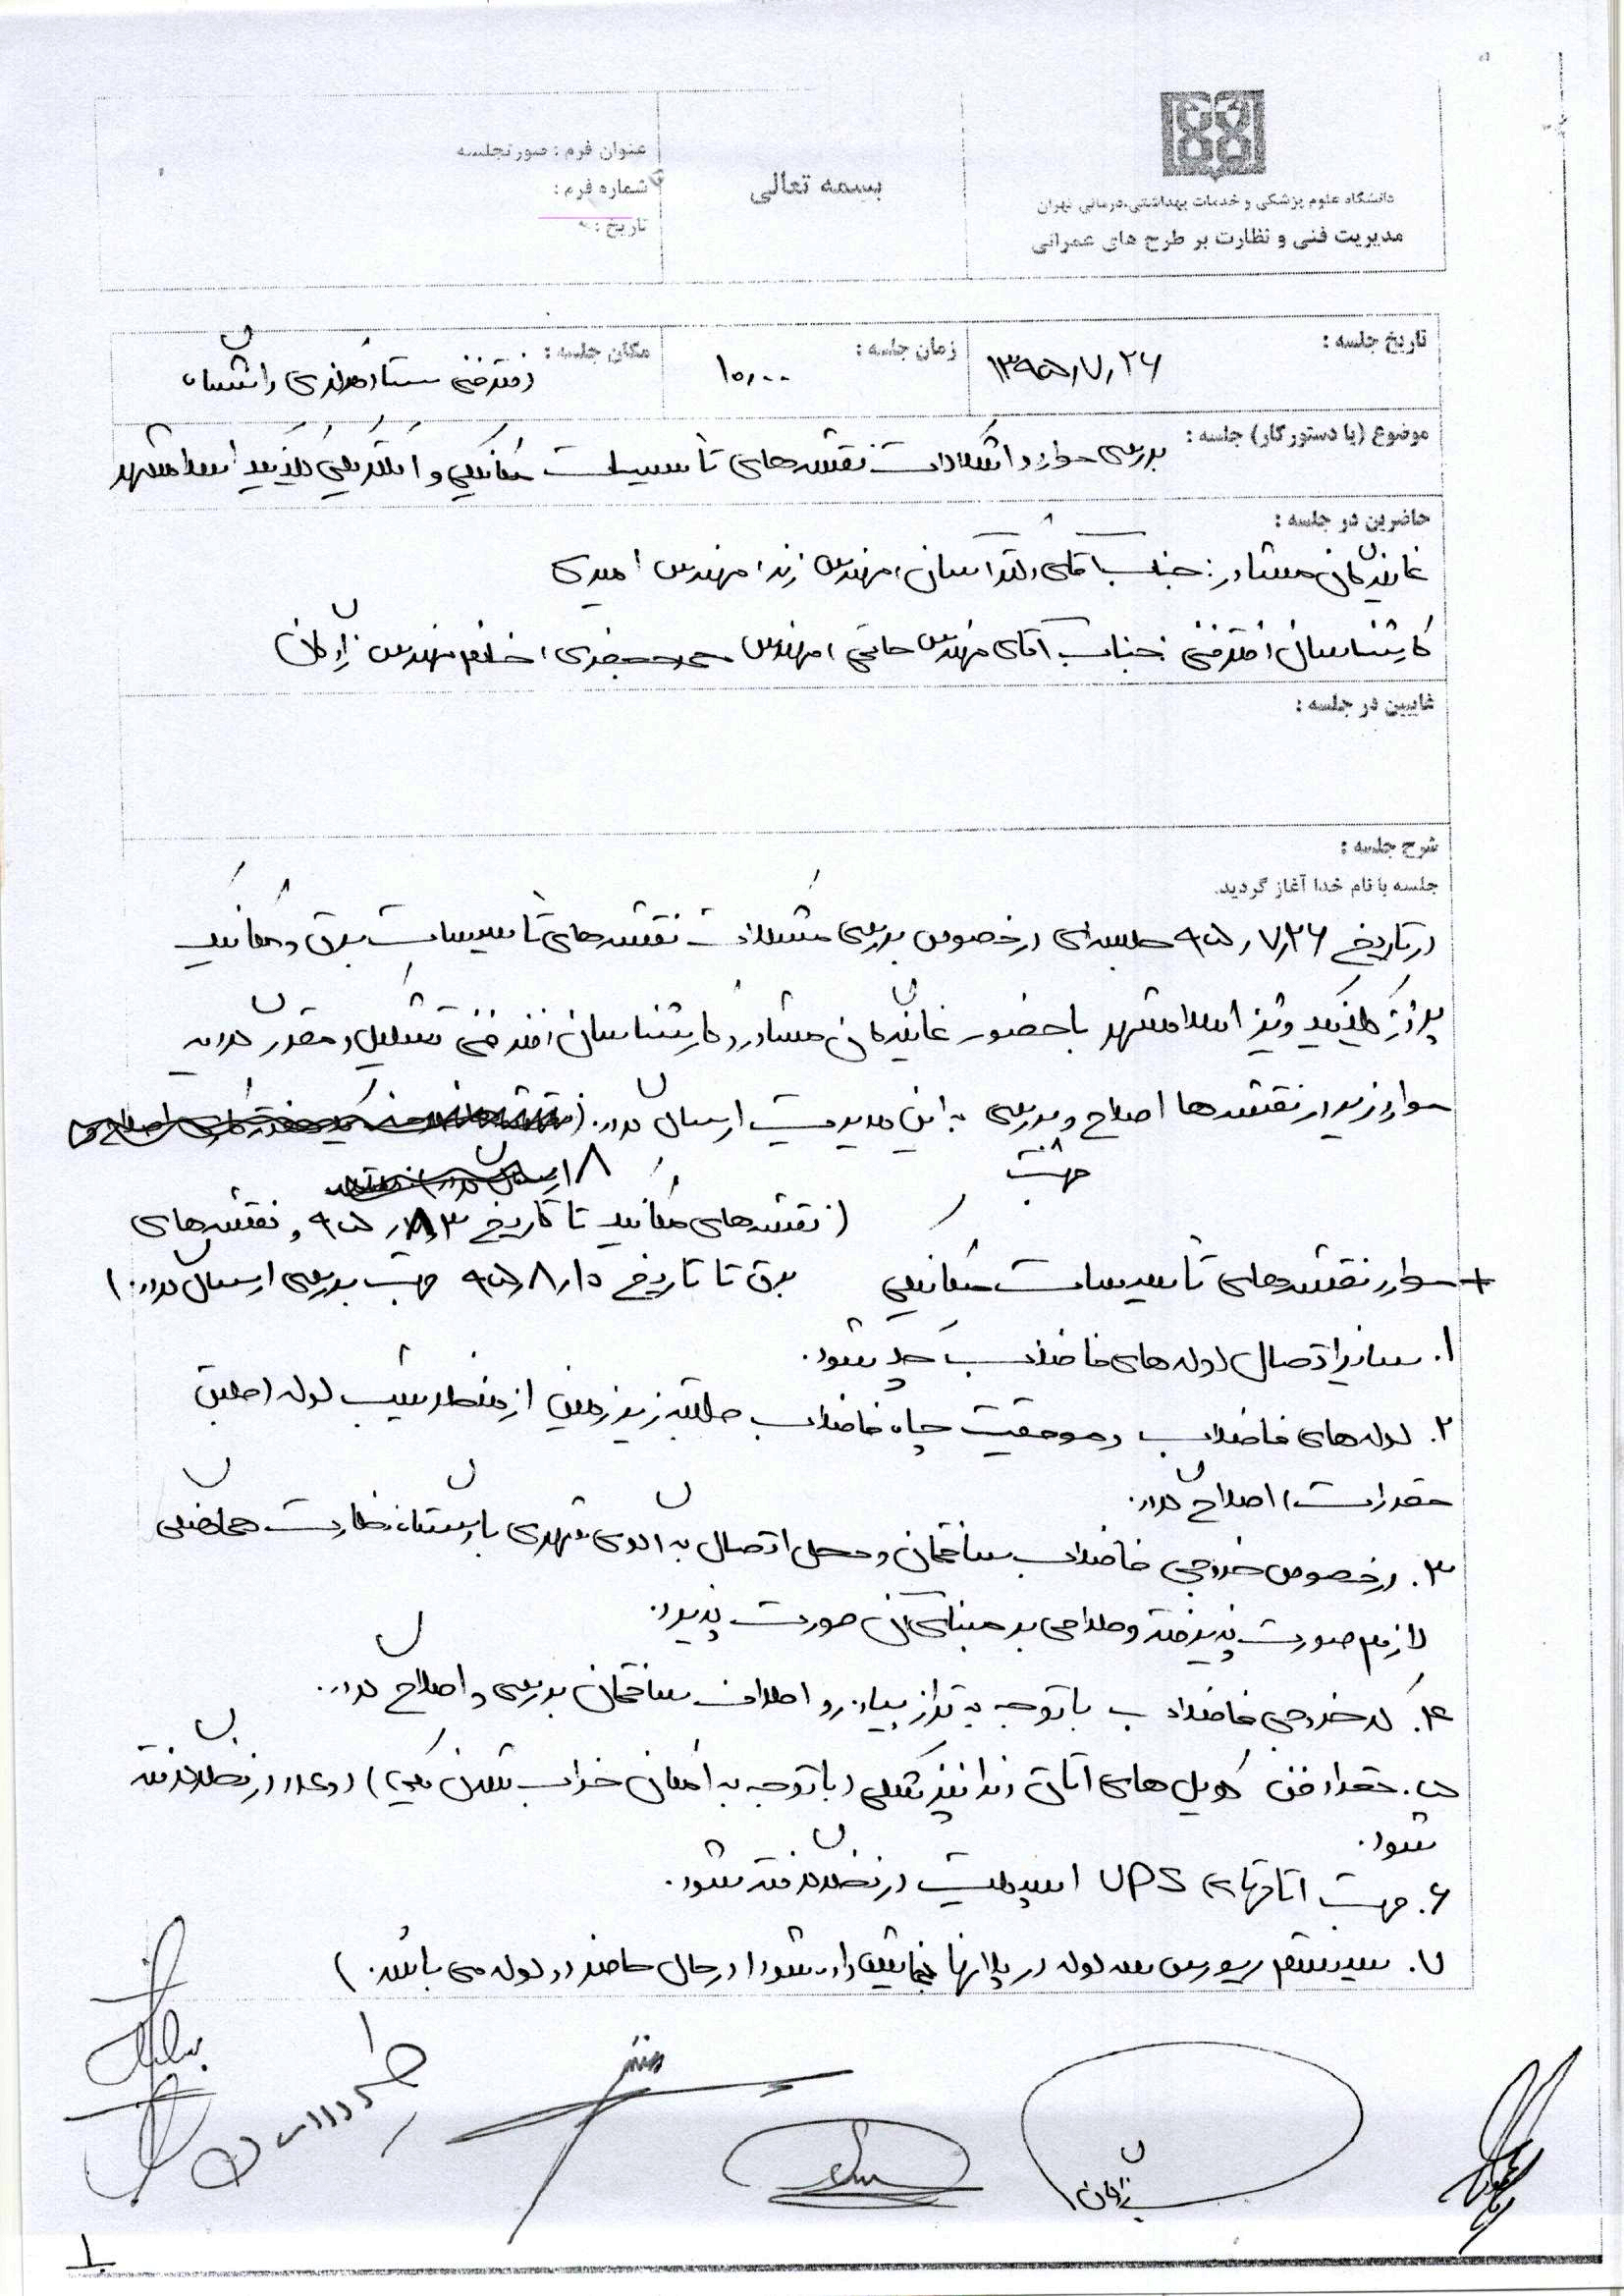 دانشگاه علوم پزشکی و خدمات بهداشتی،درمانی تهران
مدیریت فنی و نظارت بر طرح های عمرانی
بسمه تعالی
عنوان فرم : صورتجلسه
شماره فرم :
تاریخ :
تاریخ جلسه : ۱۳۹۵٫۷٫۲۶
زمان جلسه : ۱۰٫۰۰
مکان جلسه : دفتر فنی ستاد مرکزی دانشگاه
موضوع (یا دستور کار) جلسه : بررسی موارد و اشکالات نقشه های تاسیسات مکانیکی و الکتریکی کلینیک اسلامشهر
حاضرین در جلسه :
نمایندگان مشاور : جناب آقای دکتر ، مهندس زند، مهندس امیری
کارشناسان دفتر فنی : جناب آقای مهندس حاتمی ، مهندس ، خانم مهندس
غایبین در جلسه :
شرح جلسه :
جلسه با نام خدا آغاز گردید.
در تاریخ ۹۵٫۷٫۲۶ جلسه ای در خصوص بررسی مشکلات نقشه های تاسیسات برق و مکانیک
پروژه کلینیک ویژه اسلامشهر با حضور نمایندگان مشاور و کارشناسان دفتر فنی تشکیل و مقرر گردید
موارد زیر در نقشه ها اصلاح و بررسی به این مدیریت ارسال گردد. (
جهت
(نقشه های مکانیک تا تاریخ ۹۵٫۸٫۳ و نقشه های
+ موارد نقشه های تاسیسات مکانیکی
برق تا تاریخ ۹۵٫۸٫ جهت بررسی ارسال گردد.)
۱. سایز اتصال لوله های فاضلاب چک شود.
۲. لوله های فاضلاب و موقعیت چاه فاضلاب طبقه زیرزمین از منظر شیب لوله (طبق
مقررات) اصلاح گردد.
۳. در خصوص خروجی فاضلاب ساختمان و محل اتصال به اگوی شهری با دستگاه نظارت هماهنگی
لازم صورت پذیرفته و طراحی بر مبنای آن صورت پذیرد.
۴. کد خروجی فاضلاب با توجه به تراز پیاده رو اطراف ساختمان بررسی و اصلاح گردد.
۵. تعداد فن کویل های اتاق دندانپزشکی (با توجه به امکان خراب شدن یکی) دو عدد در نظر گرفته
شود.
۶. جهت اتاقهای UPS اسپلیت در نظر گرفته شود.
۷. سیستم ریورس سه لوله در پلانها نمایش داده شود (در حال حاضر دو لوله می باشد.)
۱